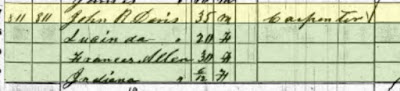 311 811 John R Davis 35 M Carpenter
Lucinda " 20 F
Frances Allen 30 F
Indiana " ½ F